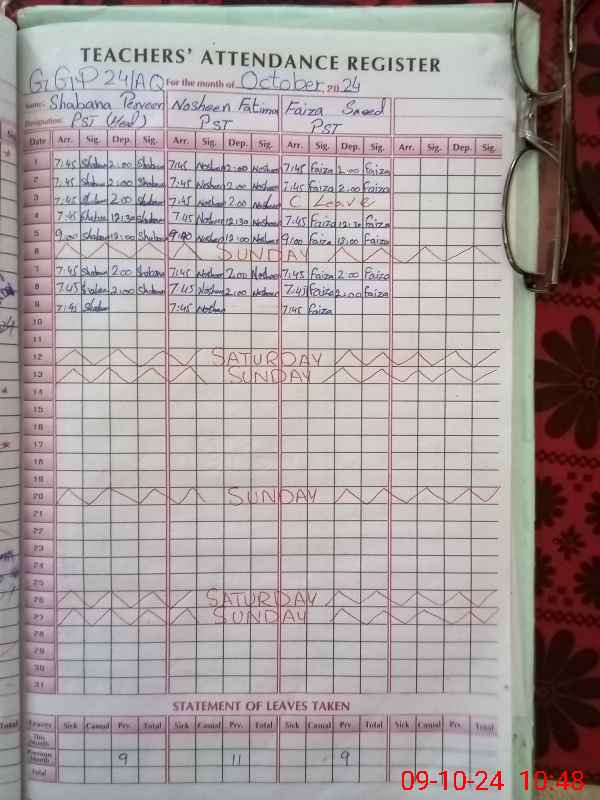 TEACHERS' ATTENDANCE REGISTER
GGP 24/AQ For the month of October, 2024
Name: Shabana Perveen Nosheen Fatima Faiza Saeed
Designation: PST (Head) PST PST
Date Arr. Sig. Dep. Sig. Arr. Sig. Dep. Sig. Arr. Sig. Dep. Sig. Arr. Sig. Dep. Sig.
1 7:45 Shabana 2:00 Shabana 7:45 Nosheen 2:00 Nosheen 7:45 Faiza 2:00 Faiza
2 7:45 Shabana 2:00 Shabana 7:45 Nosheen 2:00 Nosheen 7:45 Faiza 2:00 Faiza
3 7:45 Shabana 2:00 Shabana 7:45 Nosheen 2:00 Nosheen C Leave
4 7:45 Shabana 12:30 Shabana 7:45 Nosheen 12:30 Nosheen 7:45 Faiza 12:30 Faiza
5 9:00 Shabana 12:00 Shabana 9:00 Nosheen 12:00 Nosheen 9:00 Faiza 12:00 Faiza
6 SUNDAY
7 7:45 Shabana 2:00 Shabana 7:45 Nosheen 2:00 Nosheen 7:45 Faiza 2:00 Faiza
8 7:45 Shabana 2:00 Shabana 7:45 Nosheen 2:00 Nosheen 7:45 Faiza 2:00 Faiza
9 7:45 Shabana 7:45 Nosheen 7:45 Faiza
10
11
12 SATURDAY
13 SUNDAY
14
15
16
17
18
19
20 SUNDAY
21
22
23
24
25
26 SATURDAY
27 SUNDAY
28
29
30
31
STATEMENT OF LEAVES TAKEN
Leaves Sick Casual Prv. Total Sick Casual Prv. Total Sick Casual Prv. Total Sick Casual Prv. Total
This Month
Previous Month 9 11 9
Total
09-10-24 10:48